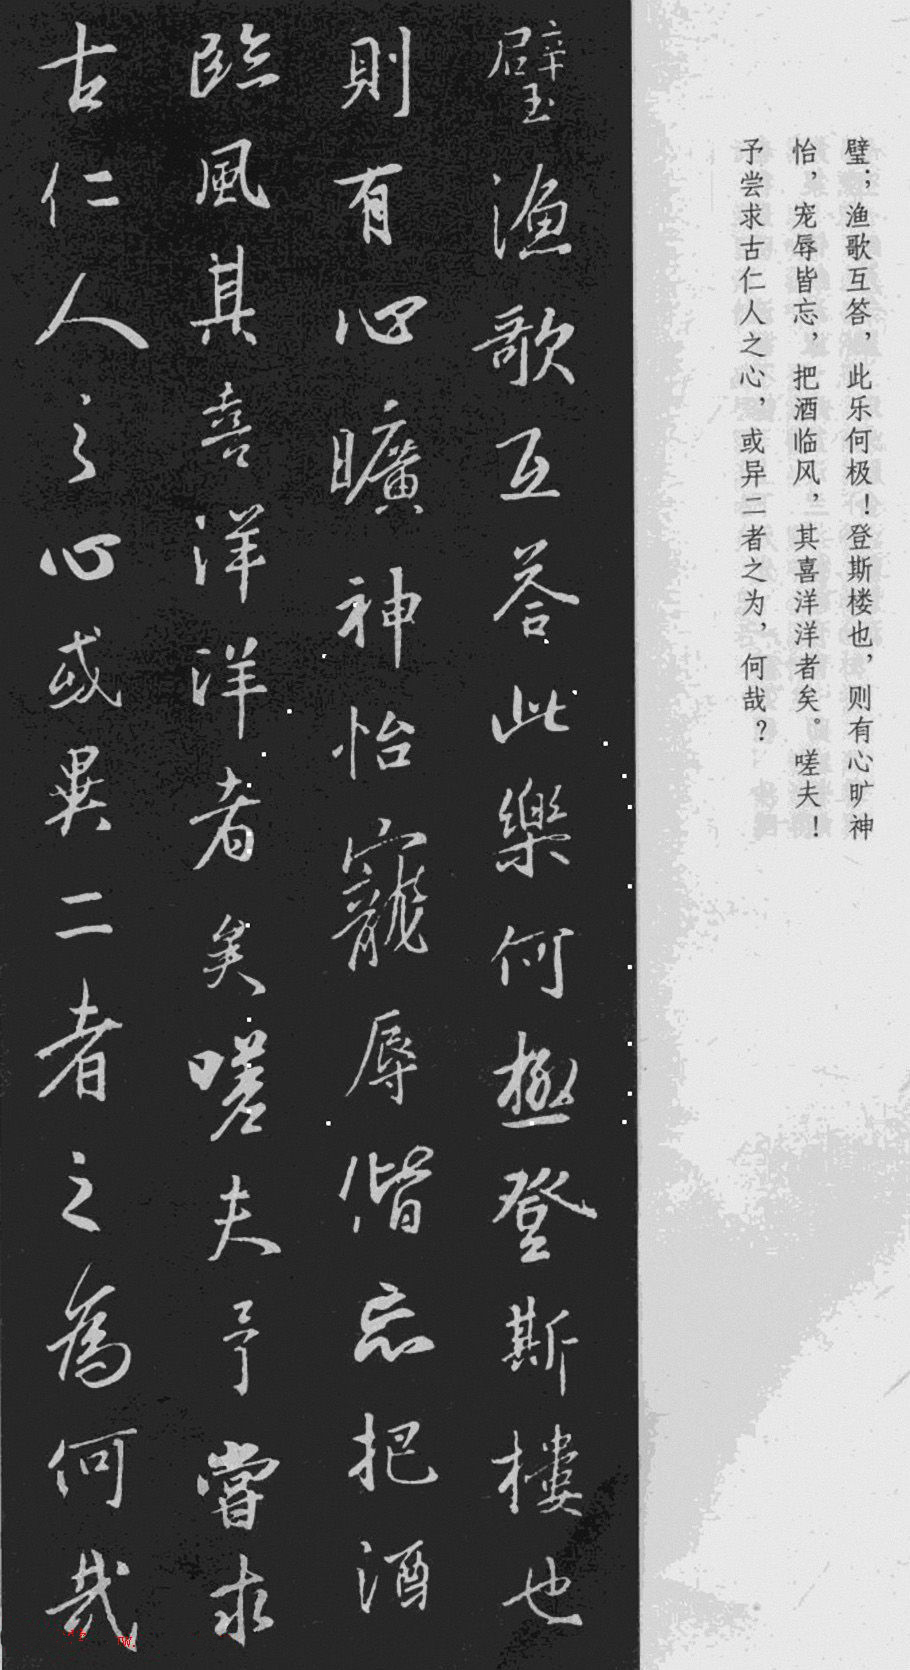 璧漁歌互荅此樂何極登斯樓也
則有心曠神怡寵辱偕忘把酒
臨風其喜洋洋者矣嗟夫予嘗求
古仁人之心或異二者之為何哉
璧；渔歌互答，此乐何极！登斯楼也，则有心旷神
怡，宠辱皆忘，把酒临风，其喜洋洋者矣。嗟夫！
予尝求古仁人之心，或异二者之为，何哉？